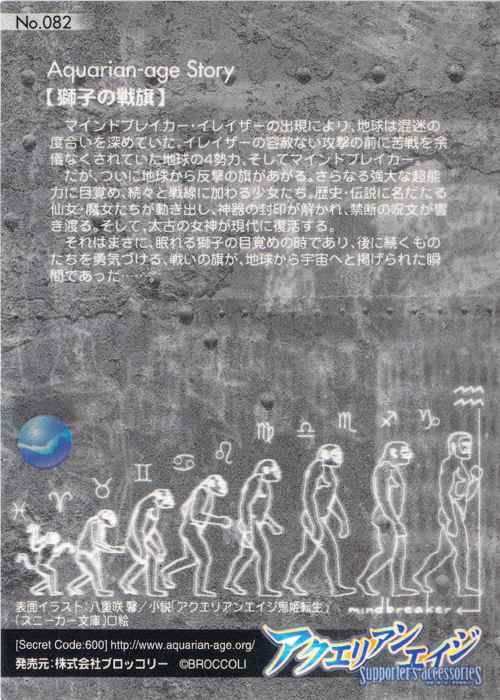 No.082
Aquarian-age Story
【獅子の戦旗】
マインドブレイカー・イレイザーの出現により、地球は混迷の
度合いを深めていた。イレイザーの容赦ない攻撃の前に苦戦を余
儀なくされていた地球の4勢力、そしてマインドブレイカー。
だが、ついに地球から反撃の旗があがる。さらなる強大な超能
力に目覚め、続々と戦線に加わる少女たち。歴史・伝説に名だたる
仙女・魔女たちが動き出し、神器の封印が解かれ、禁断の呪文が響
き渡る。そして、太古の女神が現代に復活する。
それはまさに、眠れる獅子の目覚めの時であり、後に続くもの
たちを勇気づける、戦いの旗が、地球から宇宙へと掲げられた瞬
間であった…
♓ ♈ ♉ ♊ ♋ ♌ ♍ ♎ ♏ ♐ ♑ ♒
mindbreaker
表面イラスト:八重咲 馨/小説「アクエリアンエイジ鬼姫転生」
(スニーカー文庫)口絵
[Secret Code:600] http://www.aquarian-age.org/
発売元:株式会社ブロッコリー ©BROCCOLI
アクエリアンエイジ
Supporter's accessories